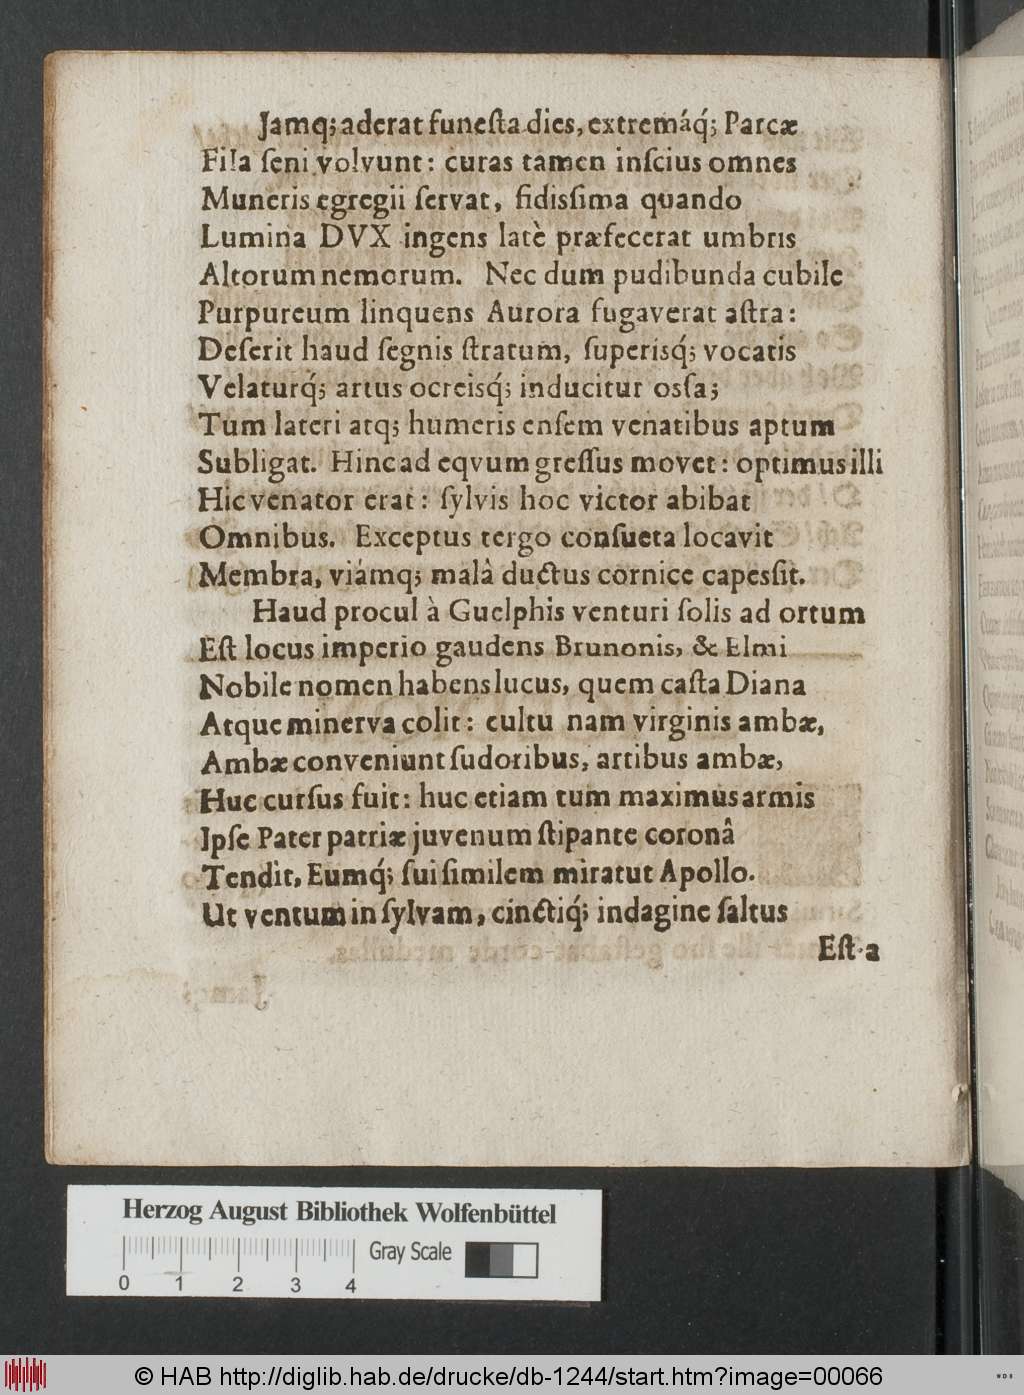 Jamq́; aderat funeſta dies, extremáq́; Parcæ
Fila ſeni volvunt: curas tamen inſcius omnes
Muneris egregii ſervat, fidisſima quando
Lumina DVX ingens latè præfecerat umbris
Altorum nemorum. Nec dum pudibunda cubile
Purpureum linquens Aurora fugaverat aſtra:
Deſerit haud ſegnis ſtratum, ſuperisq́; vocatis
Velaturq́; artus ocreisq́; inducitur osſa;
Tum lateri atq; humeris enſem venatibus aptum
Subligat. Hinc ad eqvum greſſus movet: optimus illi
Hic venator erat: ſylvis hoc victor abibat
Omnibus. Exceptus tergo conſueta locavit
Membra, viámq; malâ ductus cornice capesſit.
Haud procul à Guelphis venturi ſolis ad ortum
Eſt locus imperio gaudens Brunonis, & Elmi
Nobile nomen habens lucus, quem caſta Diana
Atque minerva colit: cultu nam virginis ambæ,
Ambæ conveniunt ſudoribus, artibus ambæ,
Huc curſus fuit: huc etiam tum maximus armis
Ipſe Pater patriæ juvenum ſtipante coronâ
Tendit, Eumq́; ſui ſimilem miratut Apollo.
Ut ventum in ſylvam, cinctiq́; indagine ſaltus
Eſt a
Herzog August Bibliothek Wolfenbüttel
Gray Scale
0 1 2 3 4
© HAB http://diglib.hab.de/drucke/db-1244/start.htm?image=00066